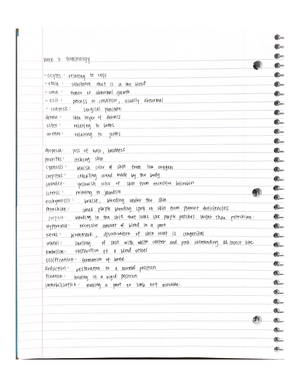 Week 3 Terminology
-cytes: relating to cells
-emia: substance that is in the blood
-oma: tumor or abnormal growth
-osis: process or condition, usually abnormal
-: surgical puncture
derma: skin layer of dermis
osteo: relating to bones
arthro: relating to joints
alopecia: loss of hair, baldness
pruritis: itching skin
cyanosis: bluish color of skin from low oxygen
crepitus: crackling sound made by the body
jaundice: yellowish color of skin from excessive bilirubin
icterus: relating to jaundice
ecchymosis: bruise, bleeding under the skin
petechiae: small purple bleeding spots on skin from platelet deficiencies
purpura: bleeding in the skin that looks like purple patches, larger than petechiae.
hyperemia: excessive amount of blood in a part
nevus: birthmark, discoloration of skin that is congenital
wheal: swelling of skin with white center and pink surrounding at insect bite
embolism: obstruction of a blood vessel
ossification: formation of bone
Reduction: restoration to a normal position
fixation: holding in a rigid position
immobilization: making a part or limb not movable.